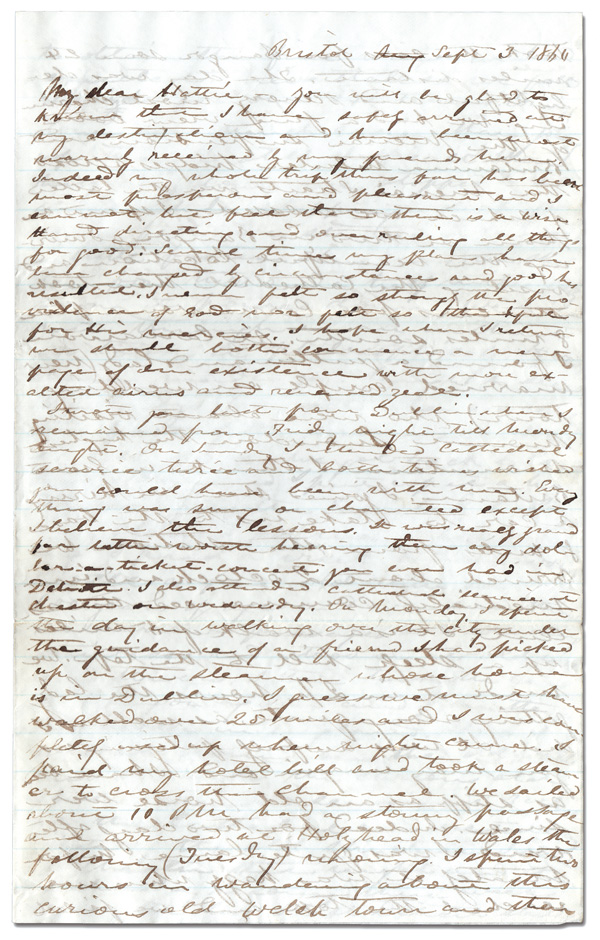 Bristol Aug Sept 3 1860
My dear Hattie - you will be glad to
know that I have safely arrived at
my destination and have been most
warmly received by my friends here.
Indeed my whole trip thus far has been
most prosperous and pleasant and I
cannot but feel that there is a wise
hand directing and overruling all things
for good. Several times my plans have
been changed by circumstances and good has
resulted. I never felt so strongly the pro
vidence of God nor felt so thankful
for His mercies. I hope when I return
we shall both commence a new
page of our existence with more ex
alted aims and renewed zeal.
I wrote you last from Dublin where I
remained from Friday night till Monday
night. On Sunday I attended cathedral
service twice and both times wished
you could have been with me. Every
thing was sung or chanted except
I believe the lessons. It was really good
far better worth hearing than any dol
lar-a-ticket-concert you ever had in
Detroit. I also attended cathedral service at
Chester on Wednesday. On Monday I spent
the day in walking over the city under
the guidance of a friend I had picked
up on the steamer whose home
is in Dublin. I presume we must have
walked over 20 miles and I was com
pletely used up when night came. I
paid my hotel bill and took a steam
er to cross the channel. We sailed
about 10 PM had a stormy passage
and arrived at Holyhead in Wales the
following (Tuesday) morning. I spent two
hours in wandering about this
curious old Welch town and then